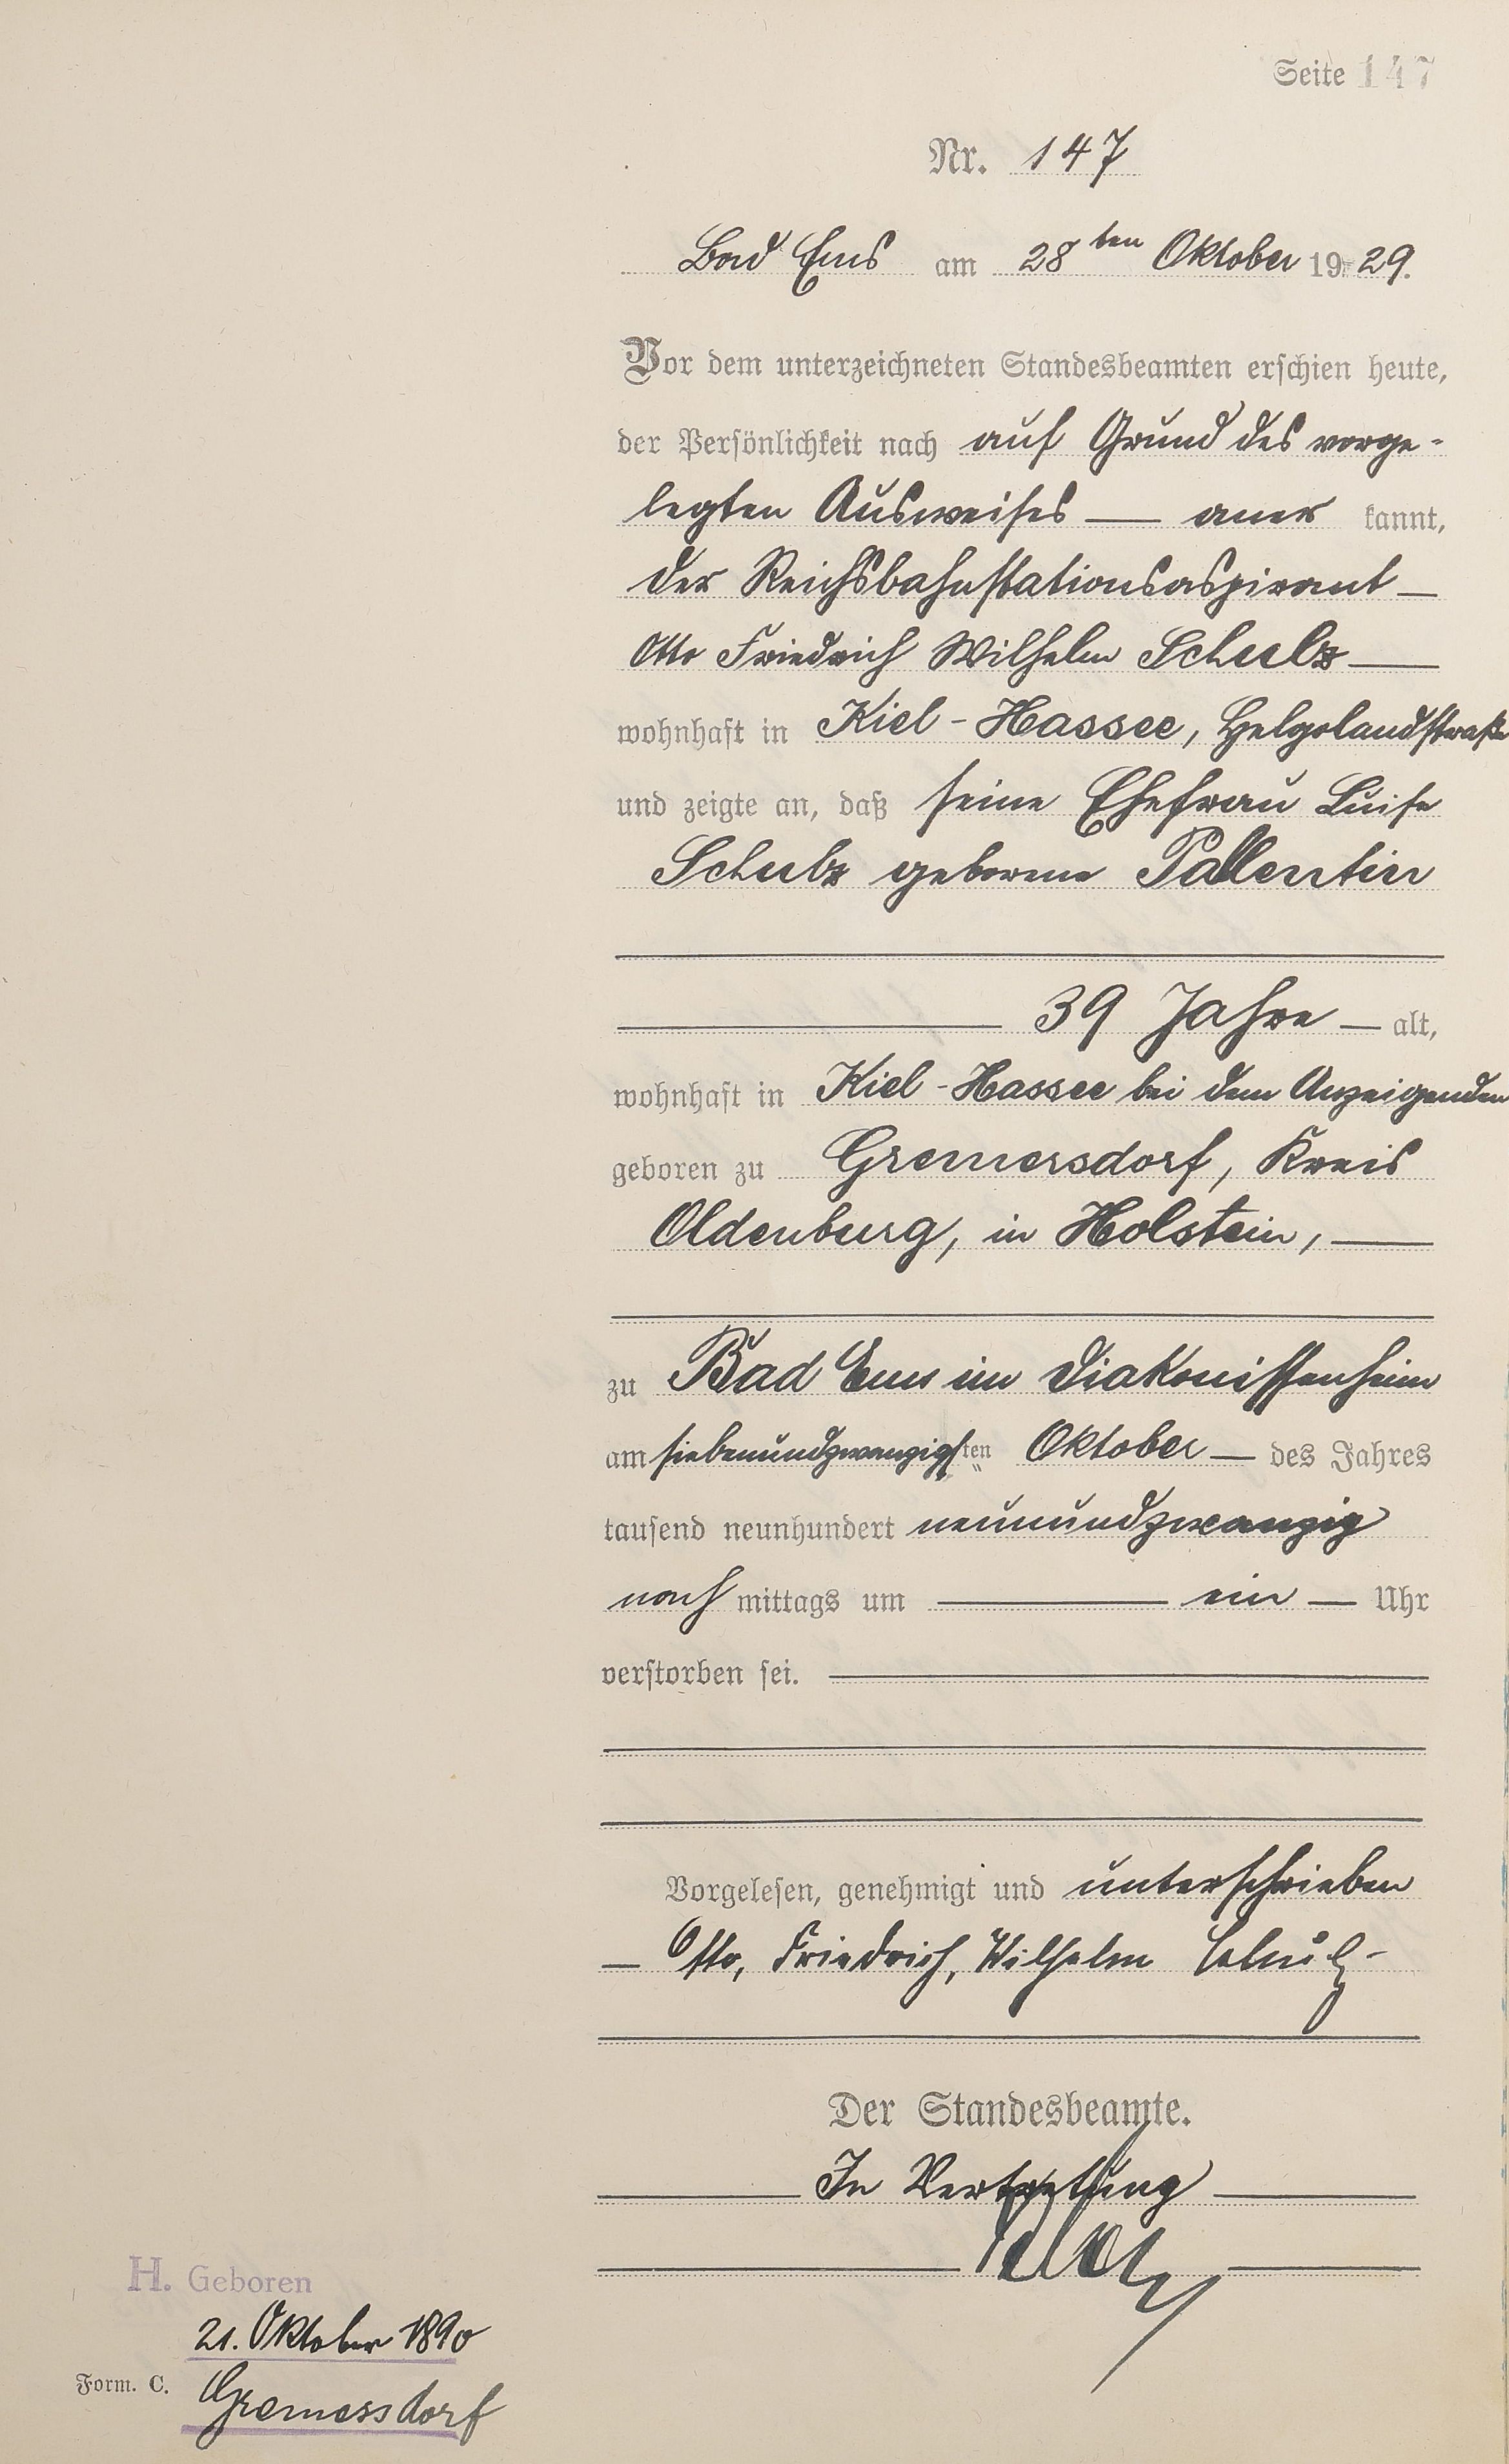 Seite 147
Nr. 147
Bad Ems am 28ten Oktober 1929.
Vor dem unterzeichneten Standesbeamten erschien heute,
der Persönlichkeit nach auf Grund des vorge-
legten Ausweises — aner kannt,
der Reichsbahnstationsaspirant —
Otto Friedrich Wilhelm Schulz —
wohnhaft in Kiel - Hassee, Helgolandstraße
und zeigte an, daß seine Ehefrau Luise
Schulz geborene Pallentin
39 Jahre — alt,
wohnhaft in Kiel - Hassee bei dem Anzeigenden
geboren zu Gremersdorf, Kreis
Oldenburg, in Holstein, —
zu Bad Ems im Diakonissenheim
am siebenundzwanzigsten Oktober — des Jahres
tausend neunhundert neunundzwanzig
nach mittags um — ein — Uhr
verstorben sei. —
Vorgelesen, genehmigt und unterschrieben
— Otto, Friedrich, Wilhelm Schulz -
Der Standesbeamte.
In Vertretung
H. Geboren
21. Oktober 1890
Form. C. Gremessdorf